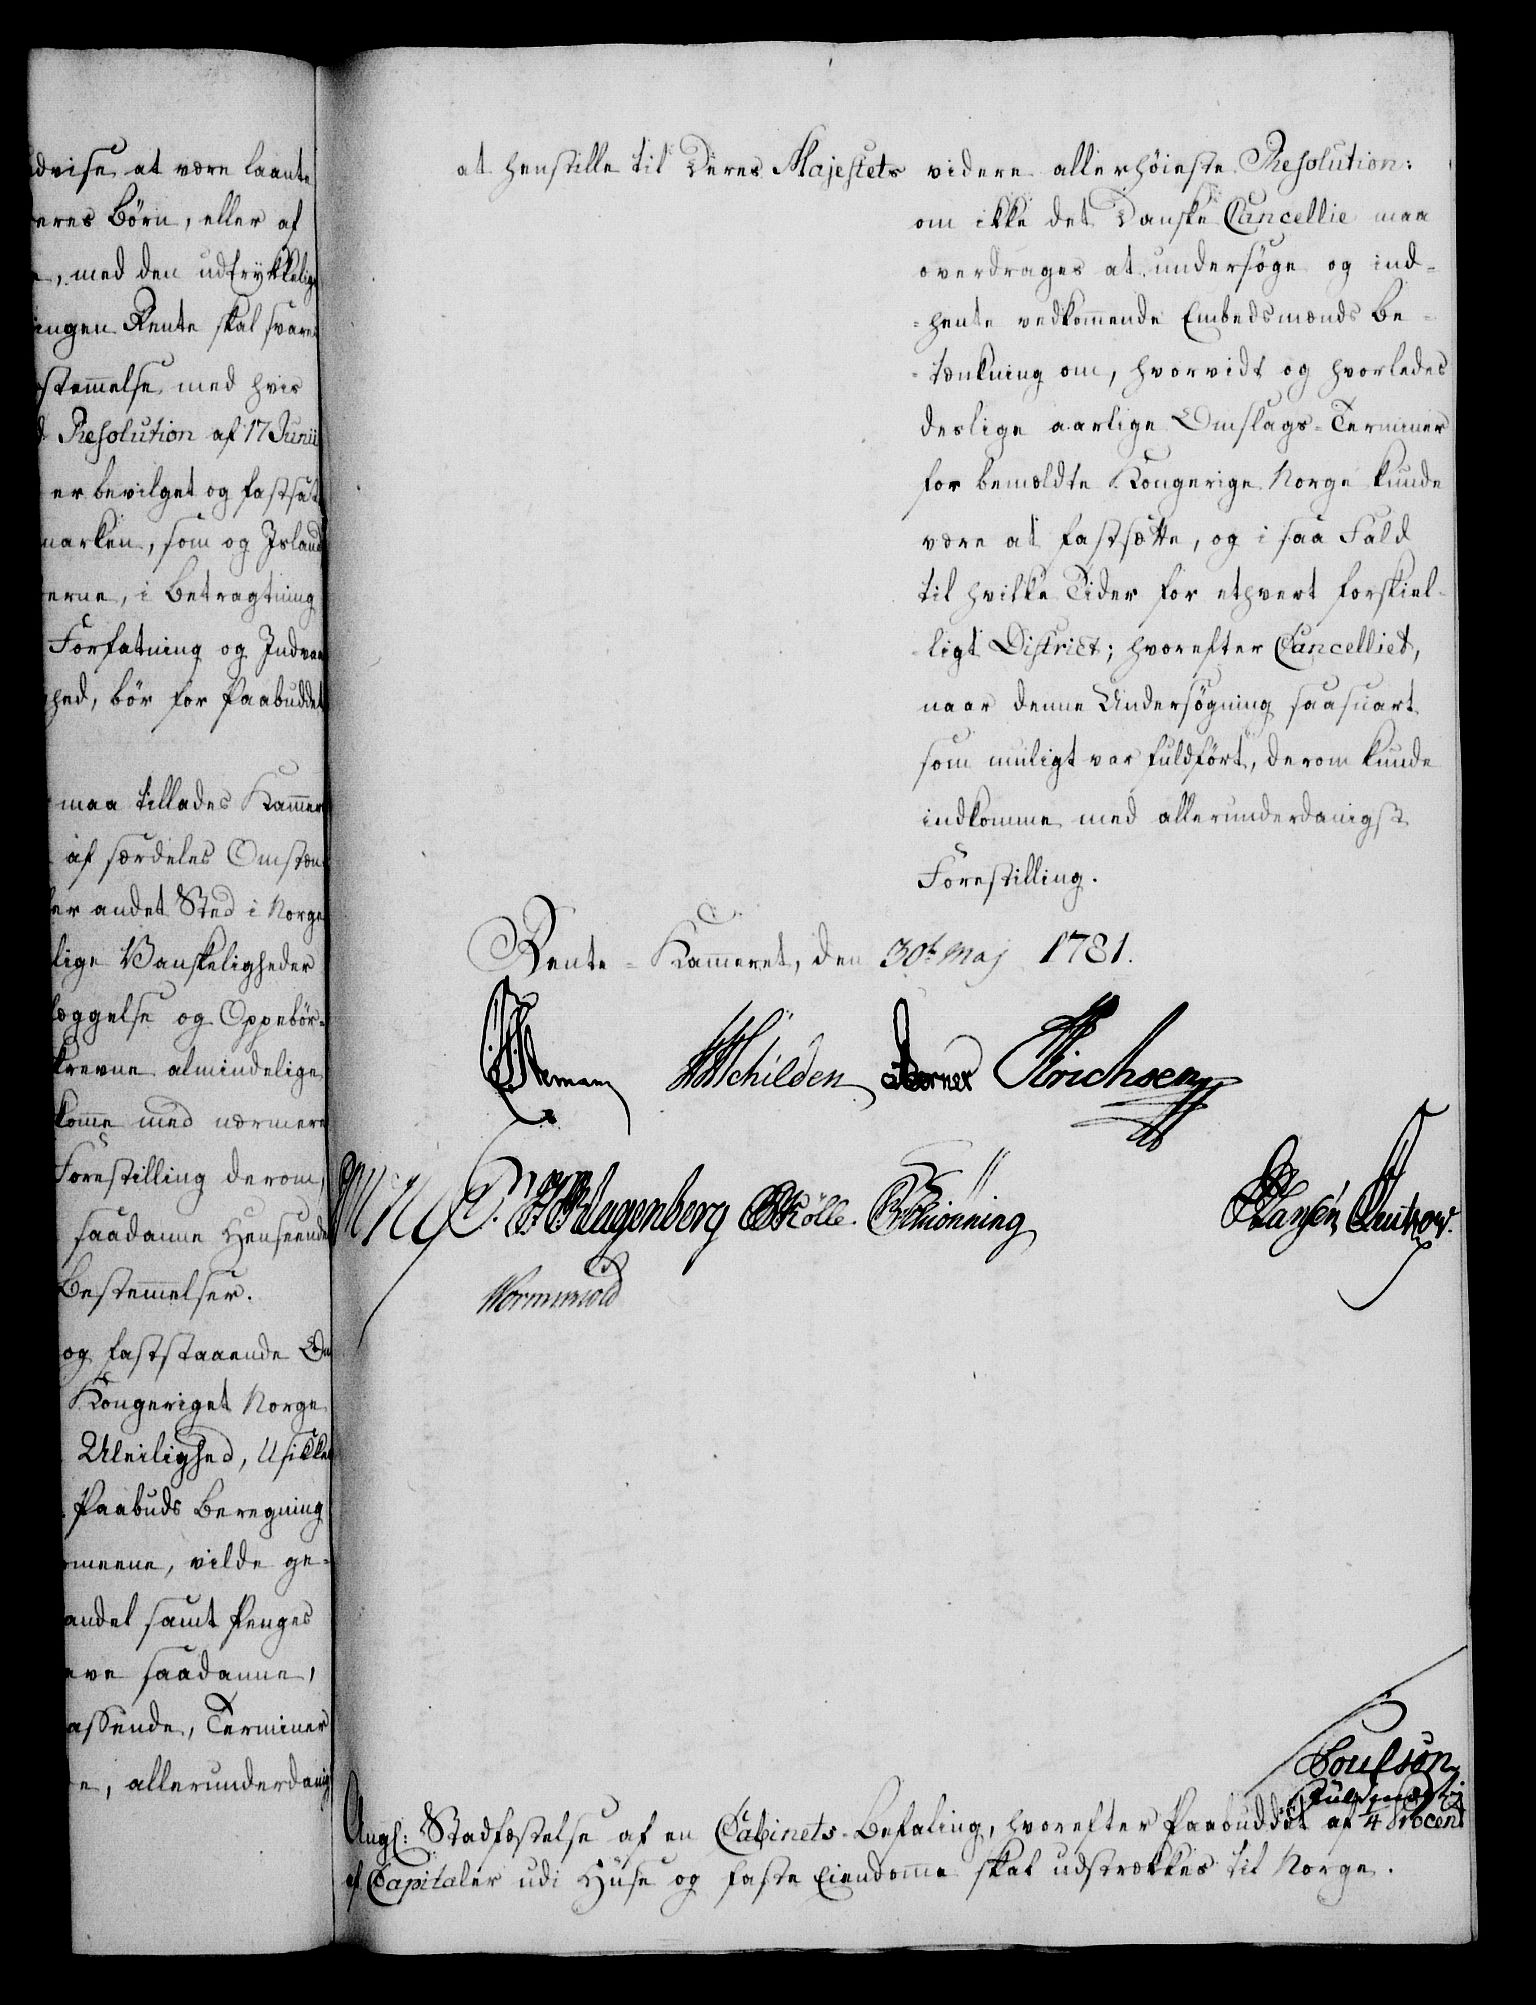 dvise at være laante
eres Börn, eller af
, med den udtrykkelige
ingen Rente skal svares
stemmelse med hvis
Resolution af 17 Junii
er bevilget og fastsat
marken, som og Island
erne, i Betragtning
Forfatning og Indvaa
hed, bör for Paabuddet
maa tillades Kammer
af særdeles Omstæn
er andet Sted i Norge
lige Vanskeligheder
læggelse og Oppebör-
krevne almindelige
komme med nærmere
Forestilling derom,
saadanne Henseende
Bestemmelser.
og faststaaende Om
Kongeriget Norge
Uleilighed, Usikker
Paabuds Beregning
omeene, vilde ge-
andel samt Penges
eve saadanne,
assende, Terminer
e, allerunderdanig
at henstille til Deres Majestets videre allerhöieste Resolution:
om ikke det Danske Cancellie maa
overdrages at undersöge og ind-
hente vedkommende Embedsmænds Be-
tænkning om, hvorvidt og hvorledes
deslige aarlige Omslags-Terminer
for bemældte Kongerige Norge kunde
være at fastsætte, og i saa Fald
til hvilke Tider for ethvert forskiel-
ligt District; hvorefter Cancelliet,
naar denne Undersögning saasnart
som muligt var fuldfört, derom kunde
indkomme med allerunderdanigst
Forestilling.
Rente-Kammeret, den 30t. Maj 1781.
Stemann Schilden Berner Erichsen
Klagenberg Rölle. Schiönning Hansen Lützow.
Wormskiold
Poulson
Fuldmægtig
Angl: Stadfæstelse af en Cabinets-Befaling, hvorefter Paabuddet af 4 Procent
af Capitaler udi Huse og faste Eiendomme skal udstrækkes til Norge.